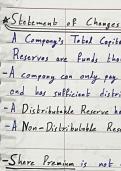 * Statement of Changes
A Company's Total Capita
Reserves are Funds tha
- A company can only pay
and has sufficient distri
- A Distributable Reserve
- A Non-Distributable Rese
- Share Premium is not